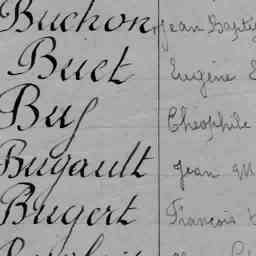 Buchon, Jean Baptis
Buet Eugène
Bus Théophile
Bugault Jean M
Bugert François